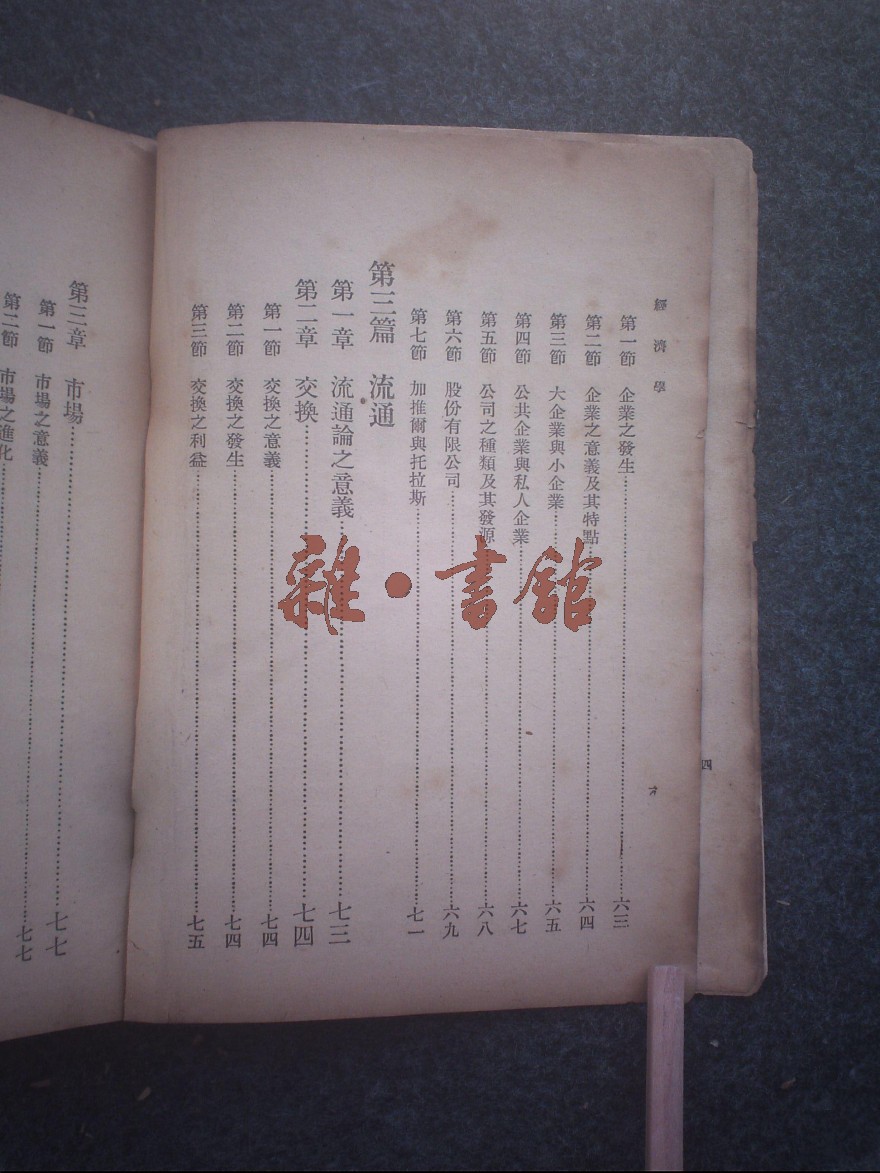 經濟學
六
第一節 企業之發生 六三
第二節 企業之意義及其特點 六四
第三節 大企業與小企業 六五
第四節 公共企業與私人企業 六七
第五節 公司之種類及其發源 六八
第六節 股份有限公司 六九
第七節 加推爾與托拉斯 七一
第三篇 流通
第一章 流通論之意義 七三
第二章 交換 七四
第一節 交換之意義 七四
第二節 交換之發生 七四
第三節 交換之利益 七五
第三章 市場 七七
第一節 市場之意義 七七
第二節 市場之進化
四
雜·書館